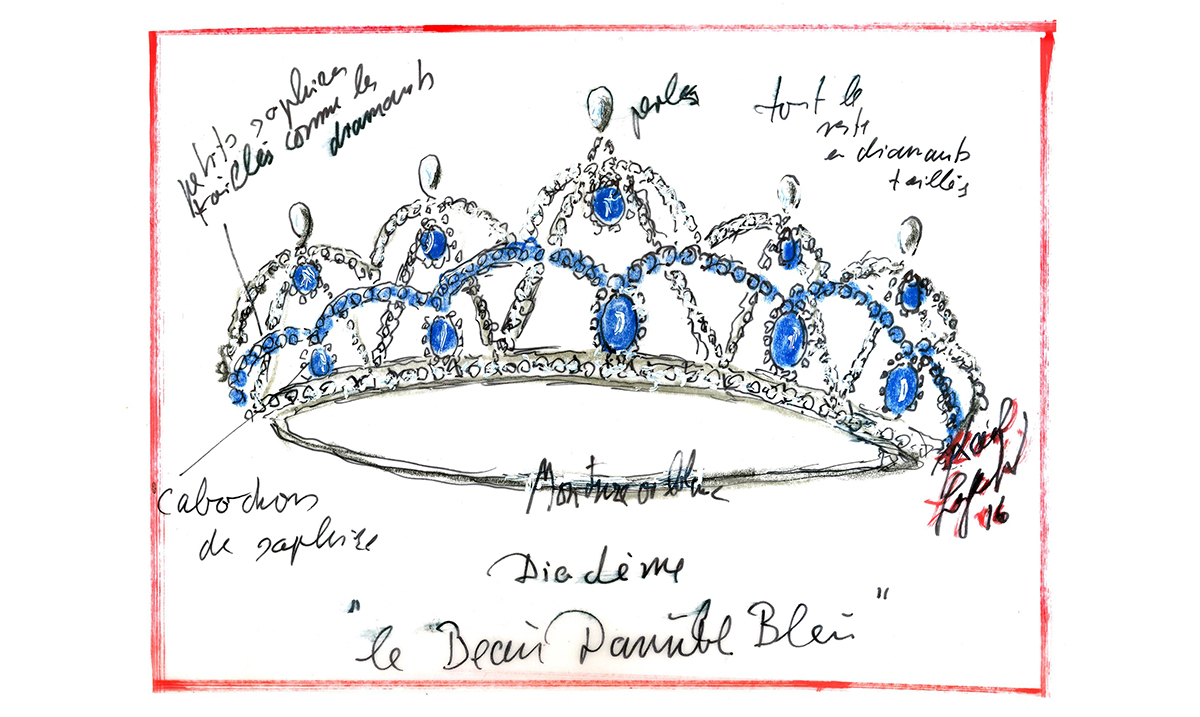 petits saphires
taillés comme les
diamants
perles
tout le
reste
en diamants
taillés
cabochons
de saphire
Monture or blanc
Karl
Lagerfeld
16
Diadème
"le Beau Danube Bleu"